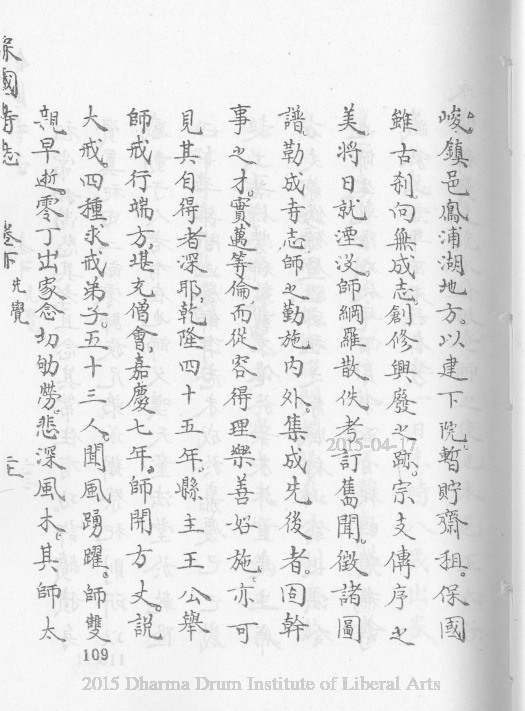 峻鎮邑鳳浦湖地方。以建下院。暫貯齋租。保國
雖古刹。向無成志。創修興廢之跡。宗支傳序之
美將日就湮没師網羅散佚。考訂舊聞。徵諸圖
譜。勒成寺志師之勤施内外。集成先後者。固幹
事之才。實邁等倫而從容得理樂善好施。亦可
見其自得者深耶。乾隆四十五年。縣主王公舉
師戒行端方。堪充僧會。嘉慶七年。師開方丈。説
大戒四種求戒弟子。五十三人。聞風踴躍。師雙
親早逝。零丁出家念切劬勞。悲深風木。其師太
保國寺志 卷下 先覺
109
2015-04-17
2015 Dharma Drum Institute of Liberal Arts